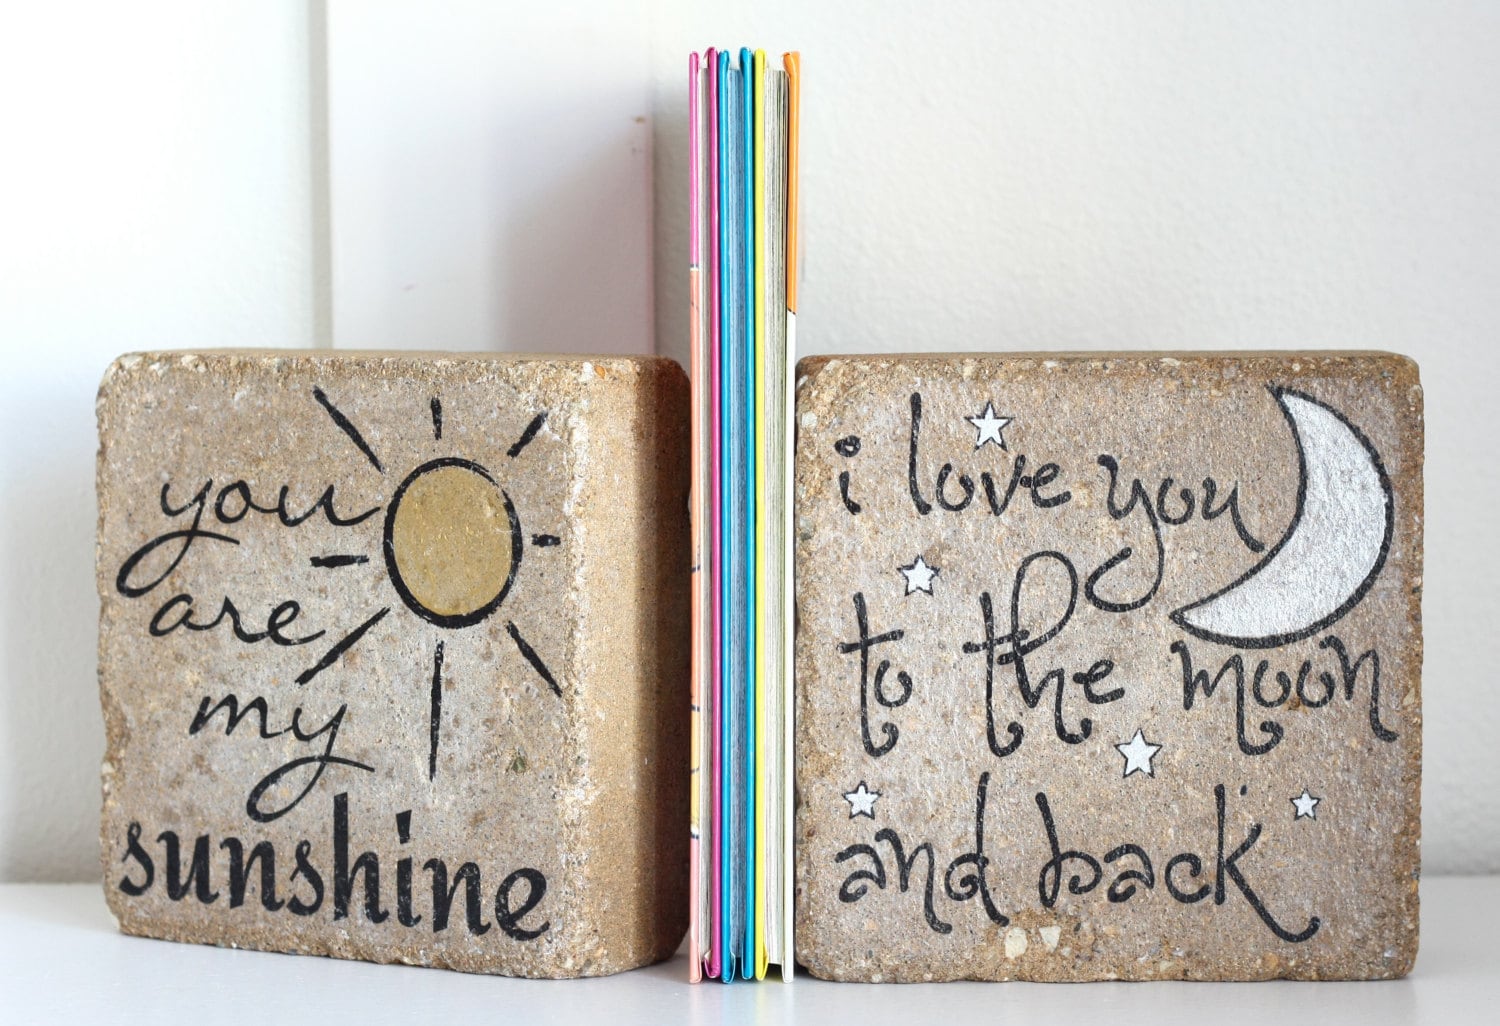 you
are
my
sunshine
i love you
to the moon
and back